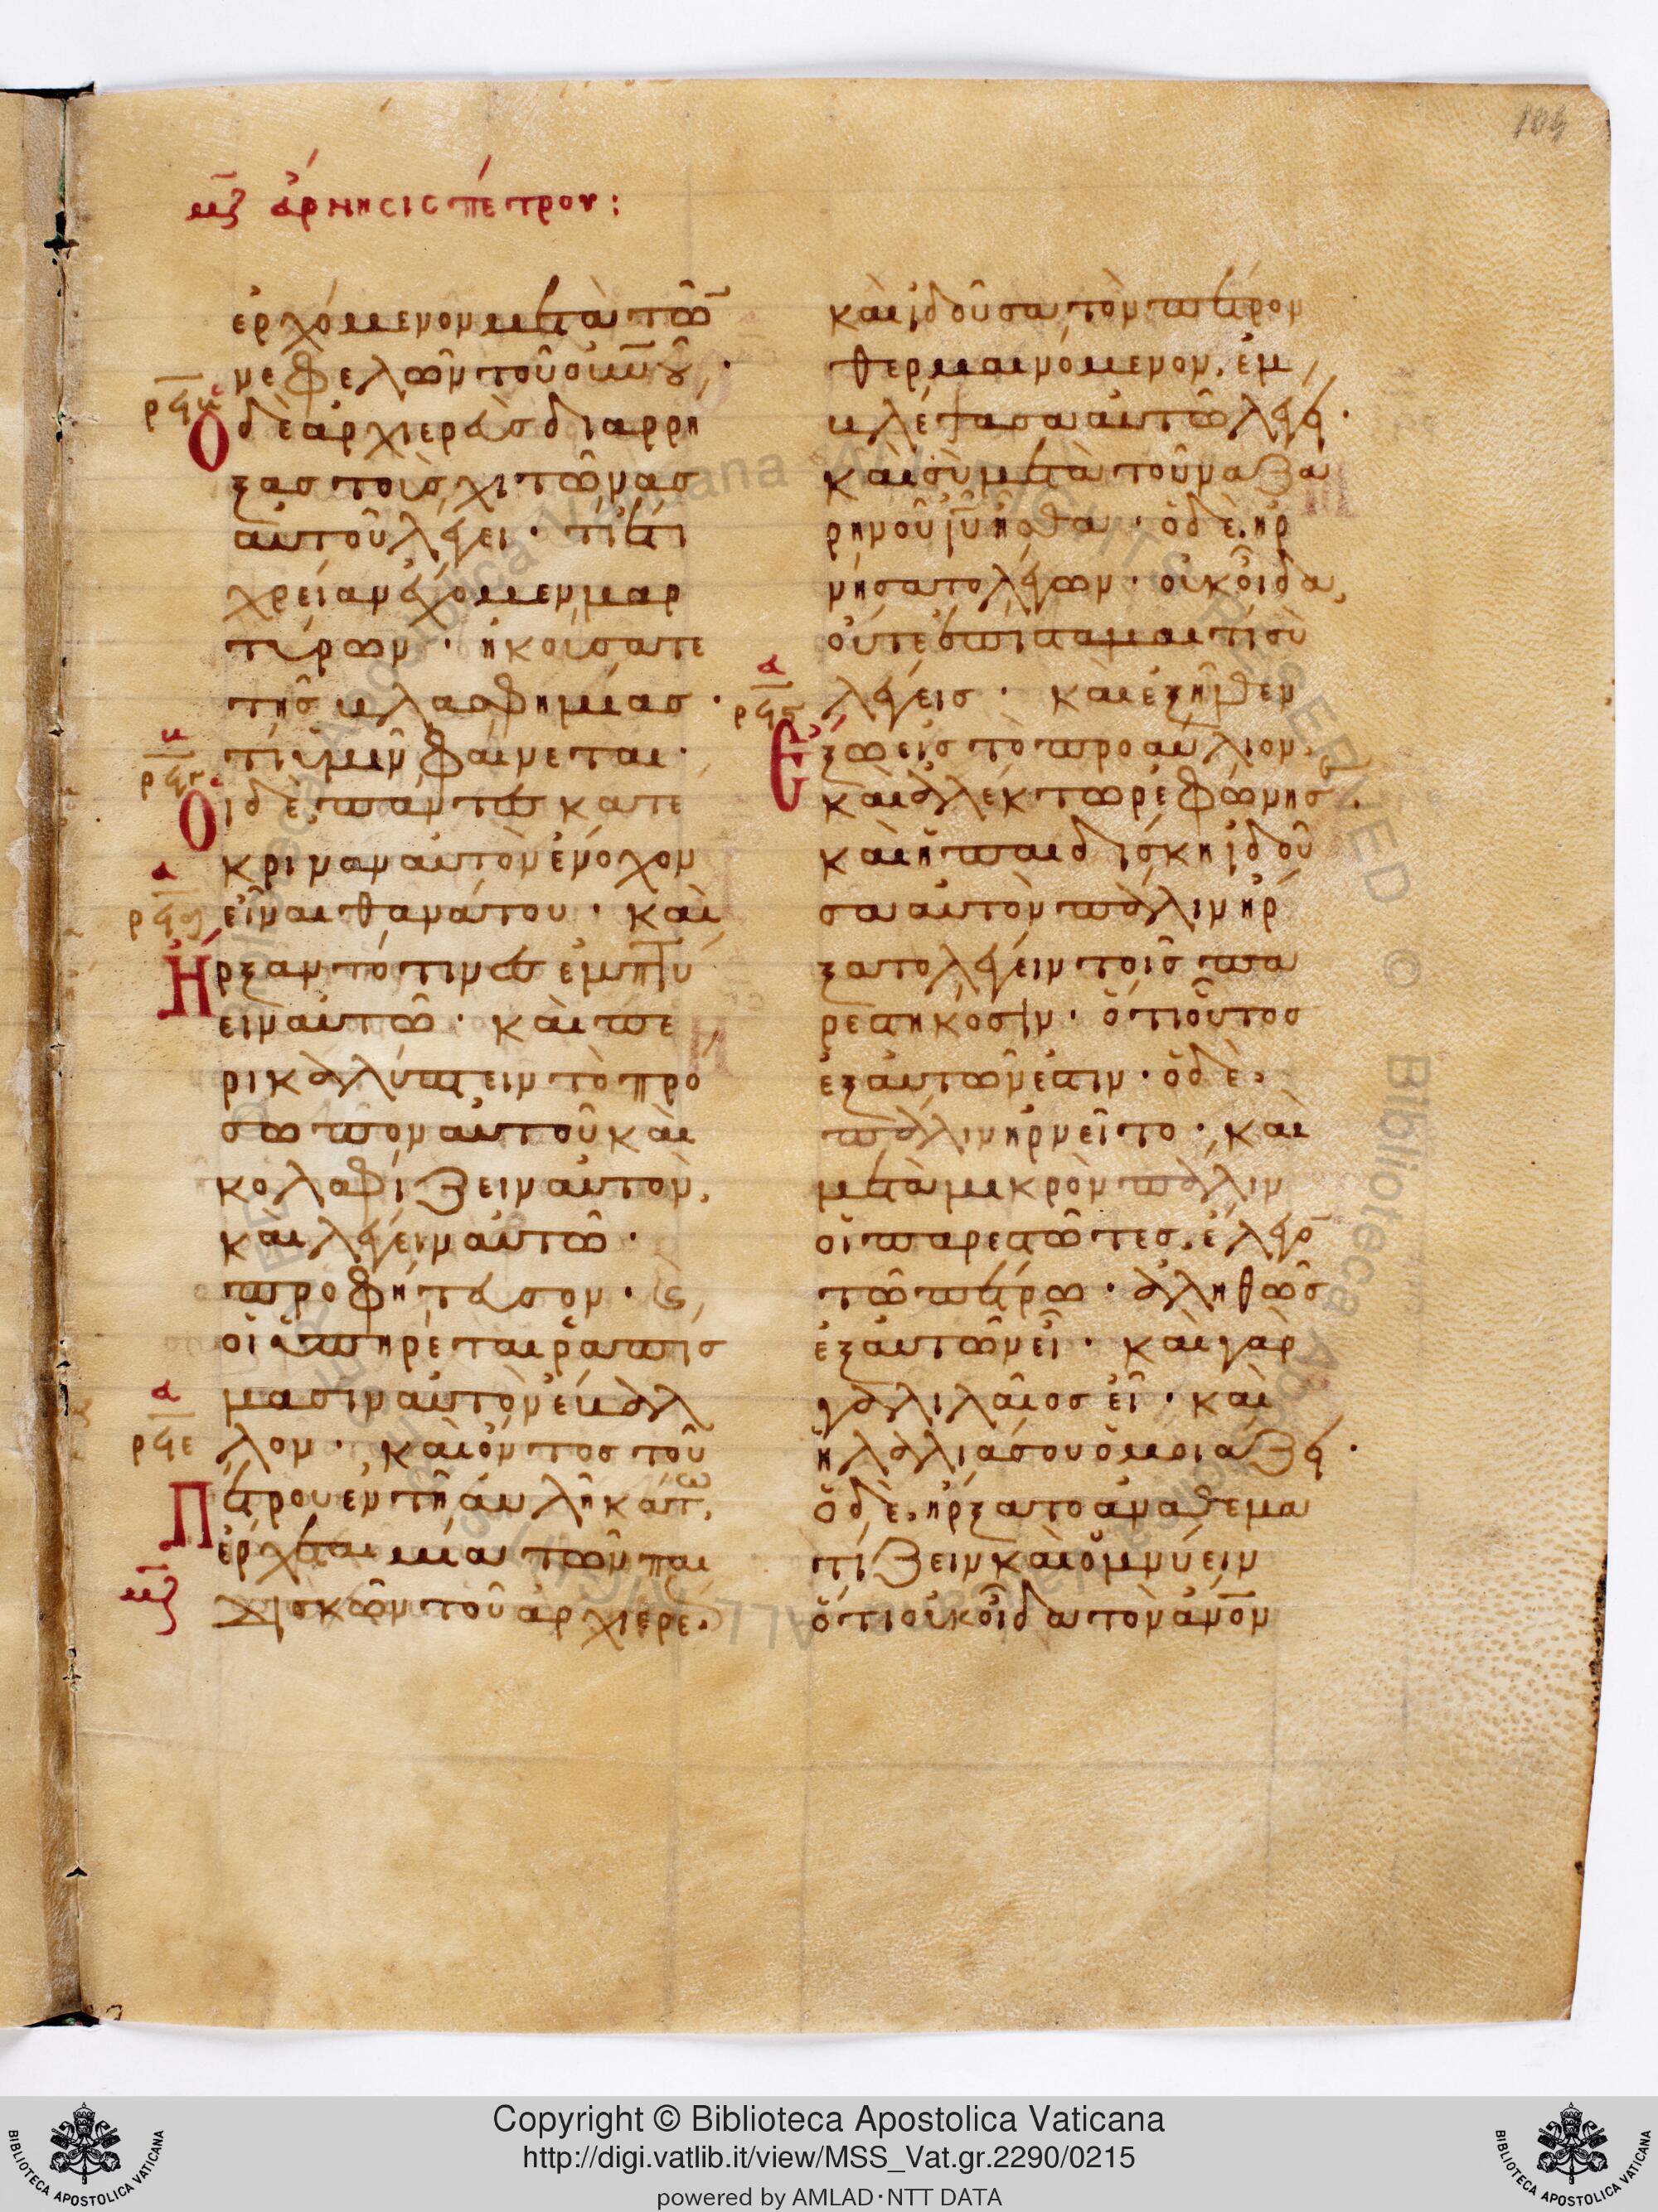 109
μζ ἄρνησις πέτρου:
ἐρχόμενον μετὰ τῶ̅
νεφελῶν τοῦ οὐν̅οῦ·
ρϟβ
Ὁ δὲ ἀρχιερεὺς διαρρή
ξας τοὺς χιτῶνας
αὐτοῦ λέγει· τί ἔτι
χρείαν ἔχομεν μαρ
τύρων· ἠκούσατε
τῆς βλασφημίας·
β
ρϟγ
τί ὑμῖν φαίνεται·
Ὁι δὲ πάντες κατέ
κριναν αὐτὸν ἔνοχον
α
ρϟδ
εἶναι θανάτου· καὶ
Ἤρξαντό τινες ἐμπτύ
ειν αὐτῶ· καὶ πε
ρικαλύπτειν τὸ πρό
σωπον αὐτοῦ καὶ
κολαφίζειν αὐτὸν,
καὶ λέγειν αὐτῶ·
προφήτευσον· ϗ
οἱ ὑπηρέται ῥαπίσ
μασιν αὐτὸν ἔβαλ
α
ρϟε
λον· καὶ ὄντος τοῦ
Πέτρου ἐν τῆ αὐλῆ κάτω,
ἔρχεται μία τῶν παι
μζ
δισκῶν τοῦ ἀρχιερέ·
καὶ ἰδοῦσα τὸν πέτρον
θερμαινόμενον, ἐμ
βλέψασα αὐτῶ λέγει·
καὶ σὺ μετὰ τοῦ ναζα
ρηνοῦ ιυ̅ ἦσθα· ὁ δὲ, ἠρ
νήσατο λέγων· οὐκ οἶδα,
οὔτε ἐπίσταμαι τί σὺ
α
ρϟϛ
λέγεις· καὶ ἐξῆλθεν
Ἔξω εἰς τὸ προαύλιον,
καὶ ἀλέκτωρ ἐφώνησε·
καὶ ἡ παιδίσκη ἰδοῦ
σα αὐτὸν πάλιν ἤρ
ξατο λέγειν τοῖς πα
ρεστηκόσιν· ὅτι οὗτος
ἐξ αὐτῶν ἐστιν· ὁ δὲ,
πάλιν ἠρνεῖτο· καὶ
μετὰ μικρὸν πάλιν
οἱ παρεστῶτες, ἔλεγο̅
τῶ πέτρω· ἀληθῶς
ἐξ αὐτῶν εἶ· καὶ γὰρ
γαλιλαῖος εἶ· καὶ
ἡ λαλιά σου ὁμοιάζει·
ὁ δὲ, ἤρξατο ἀναθεμα
τίζειν καὶ ὀμνύειν
ὅτι οὐκ οἶδα τὸν ἄν̅ον
Copyright © Biblioteca Apostolica Vaticana
http://digi.vatlib.it/view/MSS_Vat.gr.2290/0215
powered by AMLAD·NTT DATA
BIBLIOTECA APOSTOLICA VATICANA
BIBLIOTECA APOSTOLICA VATICANA